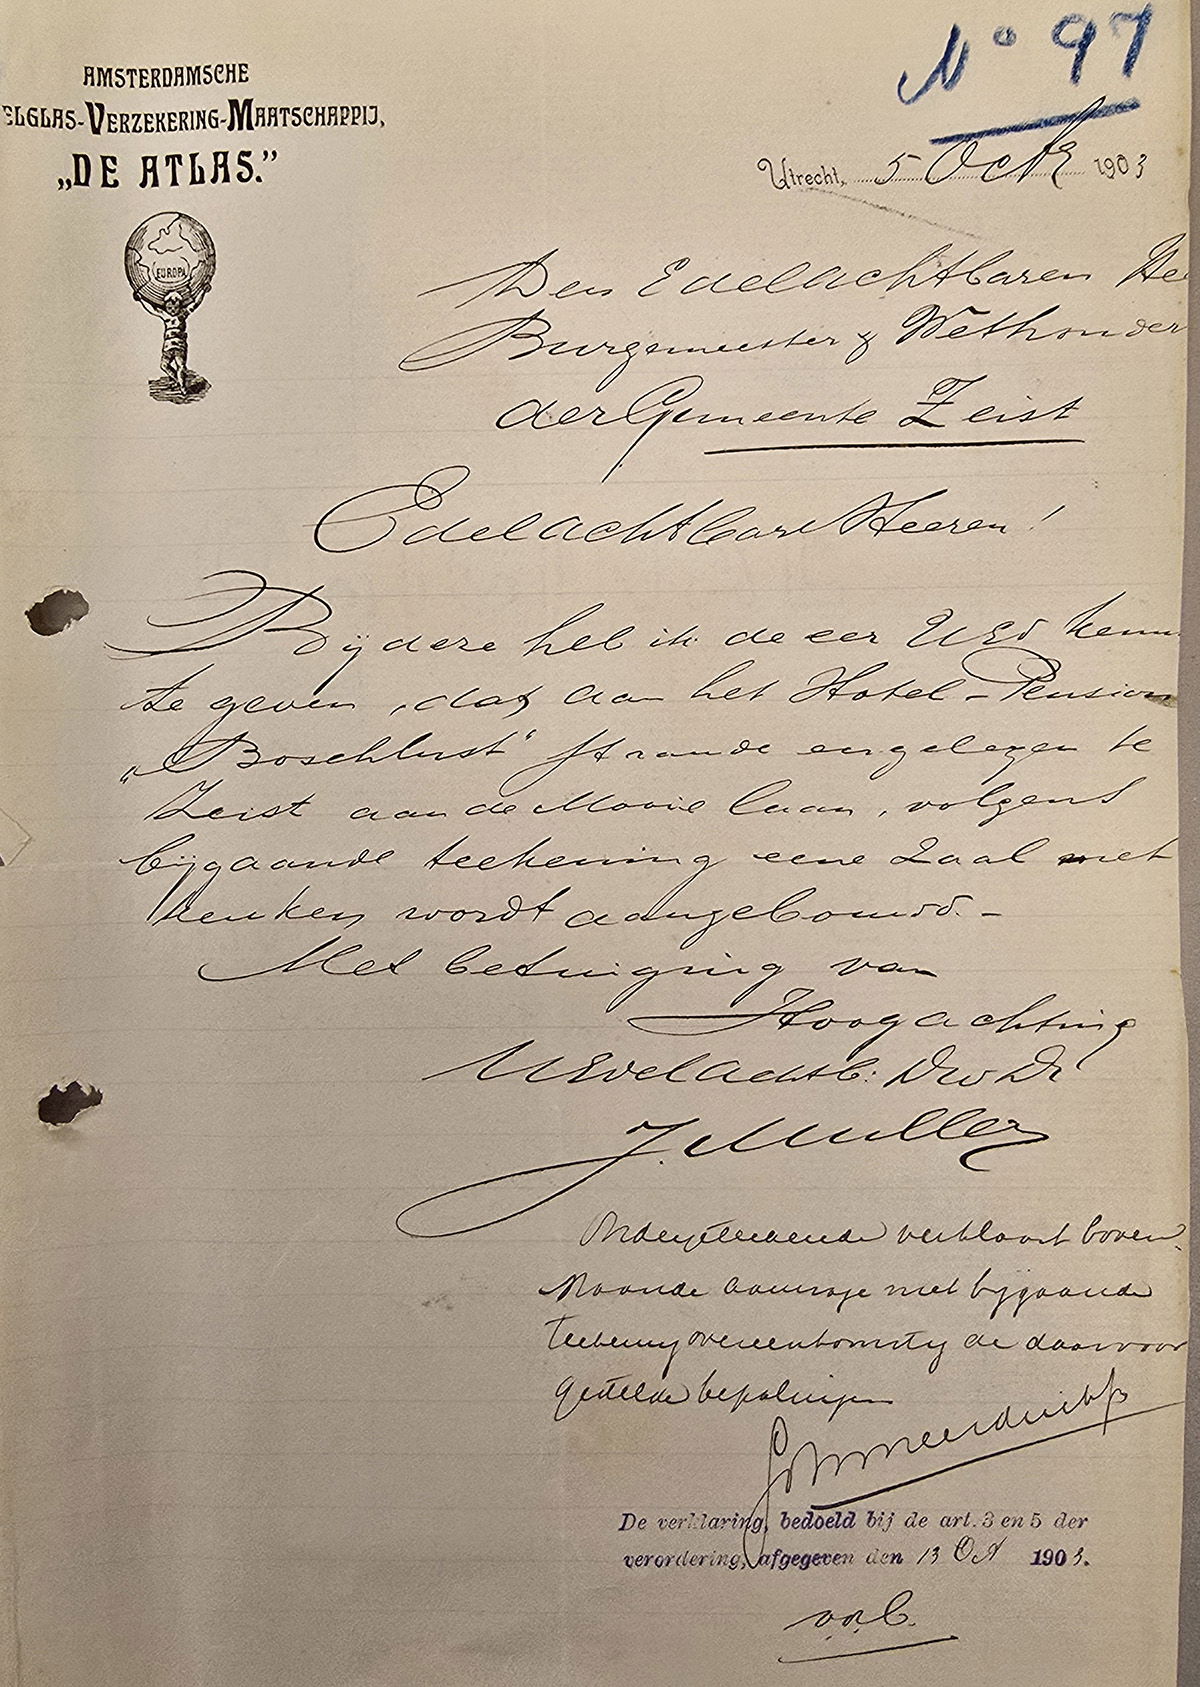 N° 97
AMSTERDAMSCHE
ELGLAS-VERZEKERING-MAATSCHAPPIJ,
„DE ATLAS.”
EUROPA
Utrecht, 5 Octr 1903
Den Edelachtbaren He
Burgemeester & Wethouder
der Gemeente Zeist
Edelachtbare Heeren!
Bij deze heb ik de eer UEd kenn
te geven, dat aan het Hotel-Pension
„Boschlust" staande en gelegen te
Zeist aan de Mooie laan, volgens
bijgaande teekening eene Zaal met
keuken wordt aangebouwd. -
Met betuiging van
Hoogachting
UEdelachtb: Dw Dr
J. Muller
Ondergeteekende verklaart boven-
staande aanvrage met bijgaande
teekening overeenkomstig de daarvoor
gestelde bepalingen
De verklaring, bedoeld bij de art. 3 en 5 der
verordering, afgegeven den 13 Oct 1903.